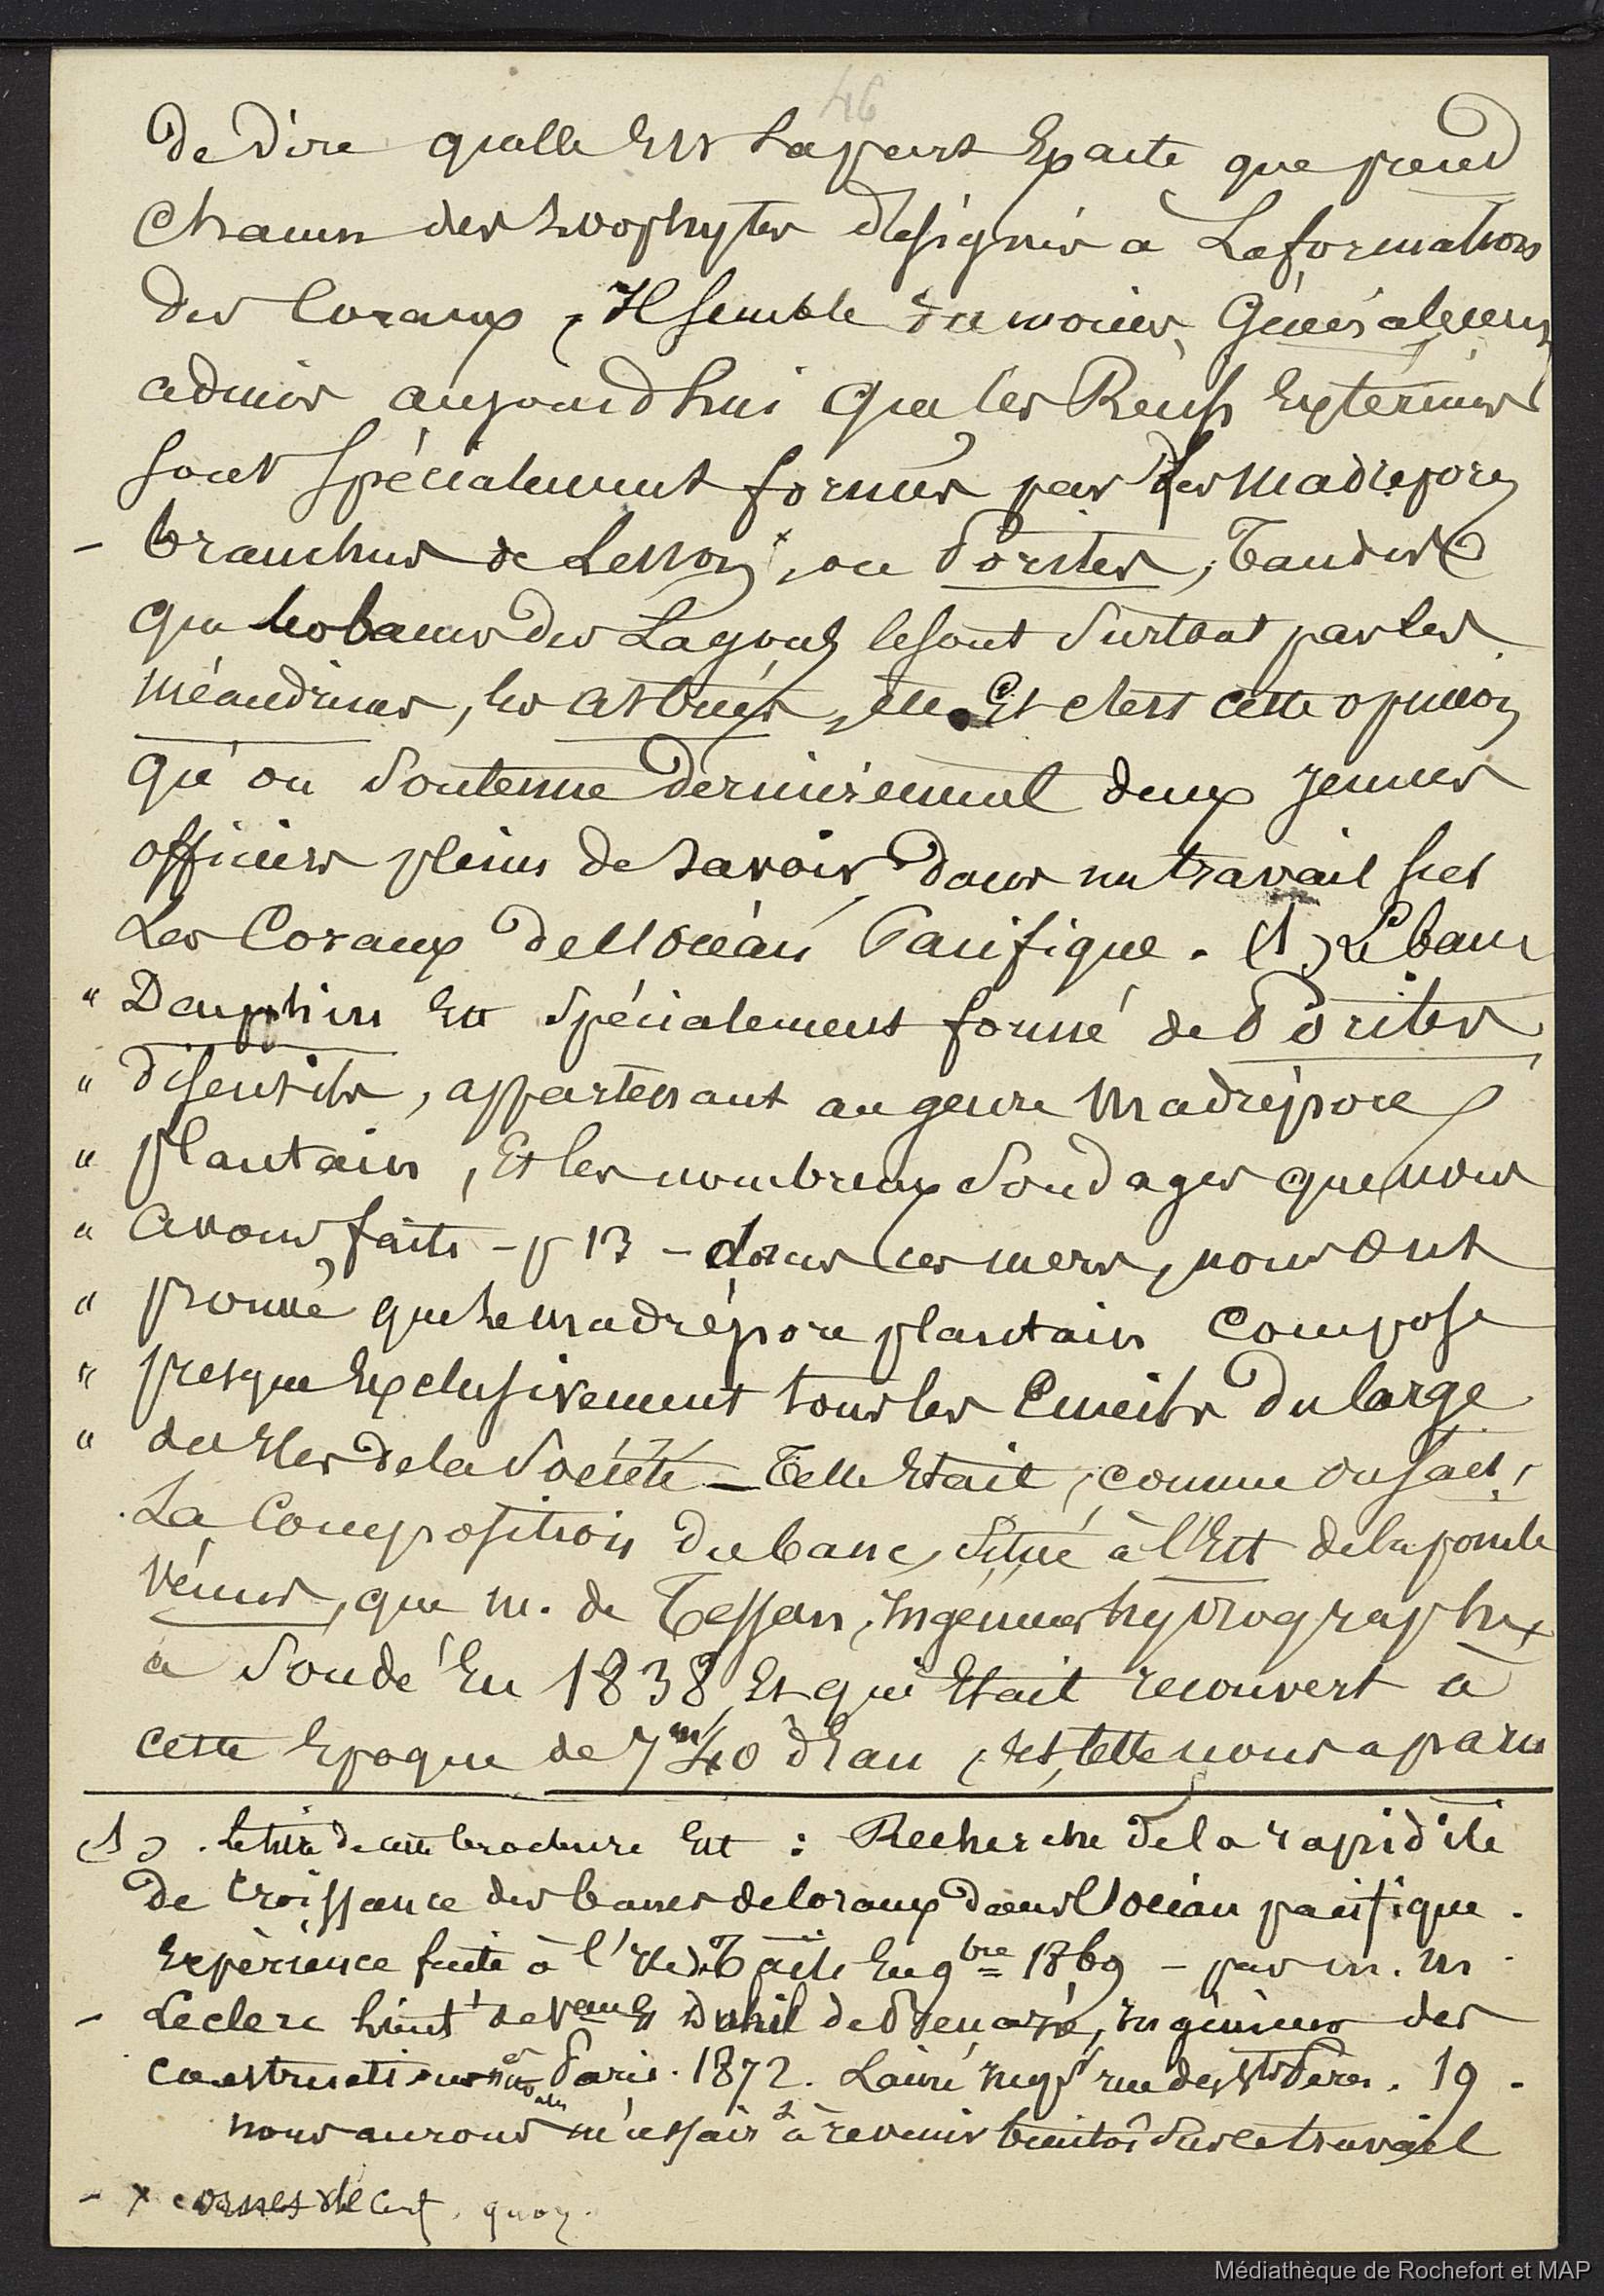 46
De Dire quelle Est La part Exacte que prend
Chacun des Zoophytes désignés à La formation
des Coraux, Il semble du moins, Généralement
admis aujourd'hui que les Récifs Extérieurs
sont spécialement formés par des Madrépores
- branchus de Lesson x, ou Porites, Tandis
que les bancs des Lagons le sont surtout par les
méandrines, les Astrées, etc. Et c'est cette opinion
qu'on Soutenue Dernièrement deux jeunes
officiers pleins de Savoir, Dans un travail sur
Les Coraux de l'océan Pacifique. (1) Le banc
" Dauphin Est Spécialement formé de Porites
" disent-ils, appartenant au genre Madrépore
" plantain, Et les nombreux Sondages que nous
" avons faits - p 13 - dans ces mers, nous ont
" prouvé que Le madrépore plantain compose
" presque Exclusivement tous les Récifs Du large
" des Iles de la Société - Telle Etait, comme on sait,
La Composition du banc, Situé à l'Est de la pointe
Vénus, que m. de Tessan, Ingénieur hydrographe
a Sondé En 1838 Et qui Etait recouvert à
cette Epoque de 7m40 d'Eau, et telle nous a paru
(1). Le titre de cette brochure Est : Recherche de la rapidité
De croissance des bancs de Coraux dans l'océan pacifique.
Expérience faite à l'Ile de Taïti En 9bre 1869 - par m. m
- Leclerc Lieut t de Vau et Duhil de Bénazé, Ingénieur des
constructions navales Paris. 1872. Lainé impr rue des Sts Pères. 19.
nous aurons nécessaire à revenir bientôt Sur ce travail
- x cornes de Cerf, quoy.
Médiathèque de Rochefort et MAP